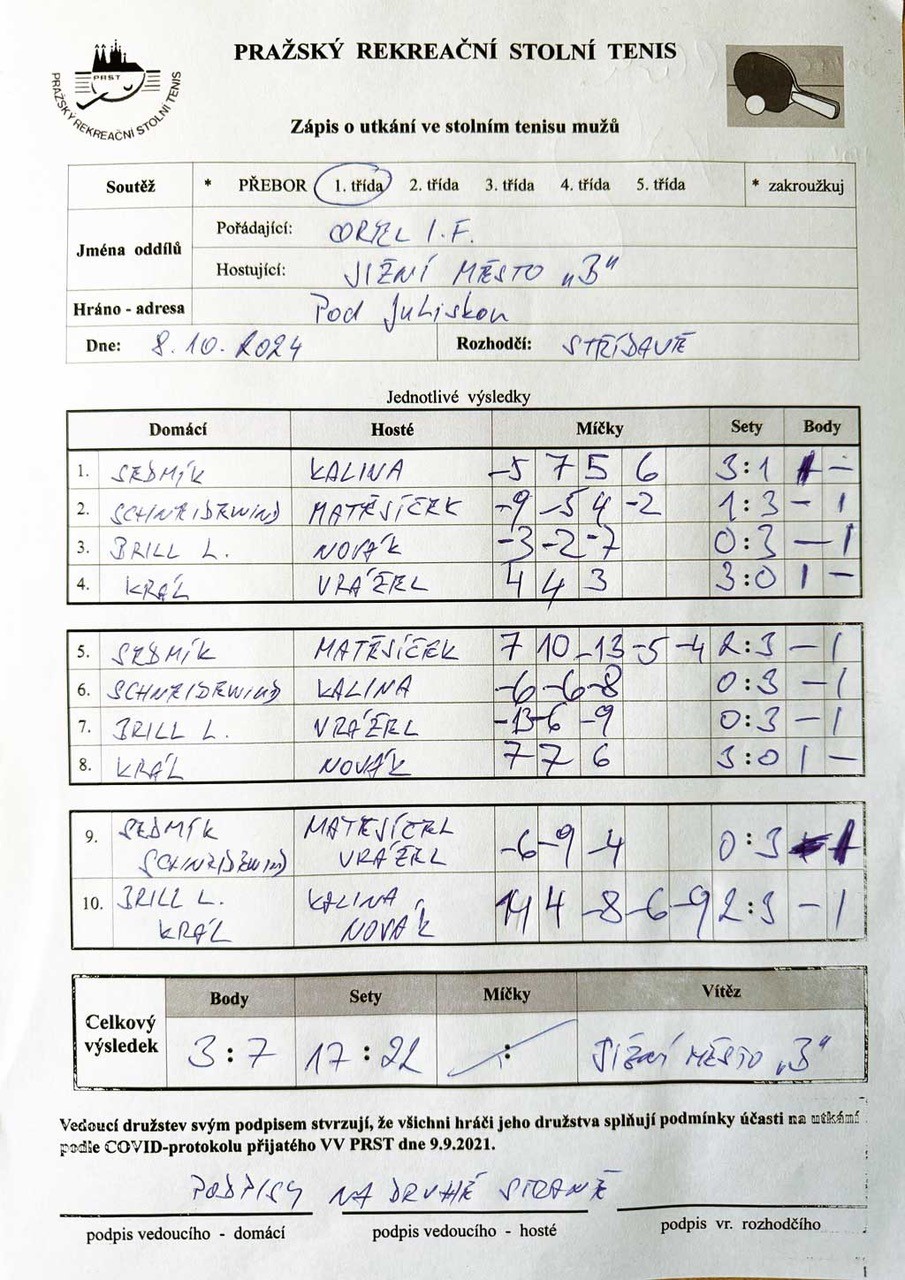 PRAŽSKÝ REKREAČNÍ STOLNÍ TENIS
PRST
PRAŽSKÝ REKREAČNÍ STOLNÍ TENIS
Zápis o utkání ve stolním tenisu mužů
Soutěž * PŘEBOR 1. třída 2. třída 3. třída 4. třída 5. třída * zakroužkuj
Jména oddílů
Pořádající: OREL I.F.
Hostující: JIŽNÍ MĚSTO „B"
Hráno - adresa Pod Juliskou
Dne: 8.10.2024 Rozhodčí: STŘÍDAVĚ
Jednotlivé výsledky
Domácí Hosté Míčky Sety Body
1. SEDMÍK KALINA -5 7 5 6 3:1 1 -
2. SCHNEIDEWIND MATĚSÍČEK -9 -5 4 -2 1:3 - 1
3. BRILL L. NOVÁK -3 -2 -7 0:3 - 1
4. KRÁL VRÁŽEL 4 4 3 3:0 1 -
5. SEDMÍK MATĚSÍČEK 7 10 -13 -5 -4 2:3 - 1
6. SCHNEIDEWIND KALINA -6 -6 -8 0:3 - 1
7. BRILL L. VRÁŽEL -13 -6 -9 0:3 - 1
8. KRÁL NOVÁK 7 7 6 3:0 1 -
9. SEDMÍK MATĚSÍČEK
SCHNEIDEWIND VRÁŽEL -6 -9 -4 0:3 - 1
10. BRILL L. KALINA
KRÁL NOVÁK 14 4 -8 -6 -9 2:3 - 1
Celkový výsledek
Body Sety Míčky Vítěz
3:7 17:22 : JIŽNÍ MĚSTO „B"
Vedoucí družstev svým podpisem stvrzují, že všichni hráči jeho družstva splňují podmínky účasti na utkání
podle COVID-protokolu přijatého VV PRST dne 9.9.2021.
PODPISY NA DRUHÉ STRANĚ
podpis vedoucího - domácí podpis vedoucího - hosté podpis vr. rozhodčího